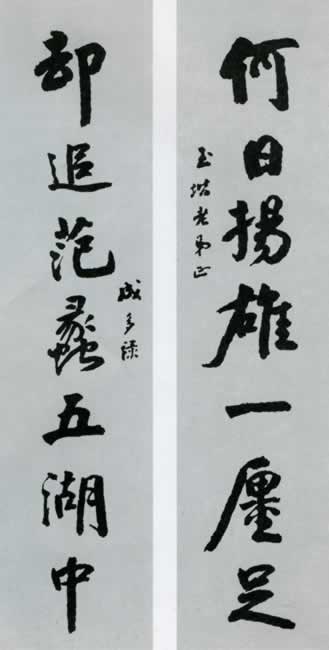 何日揚雄一廛足
玉堦老弟正
却追范蠡五湖中
成多祿